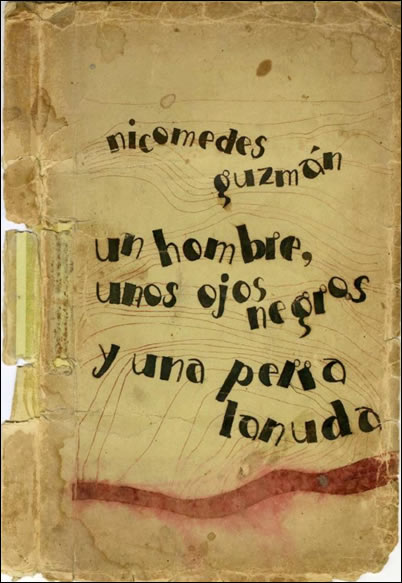 nicomedes
guzmán
un hombre,
unos ojos
negros
y una perra
lanuda